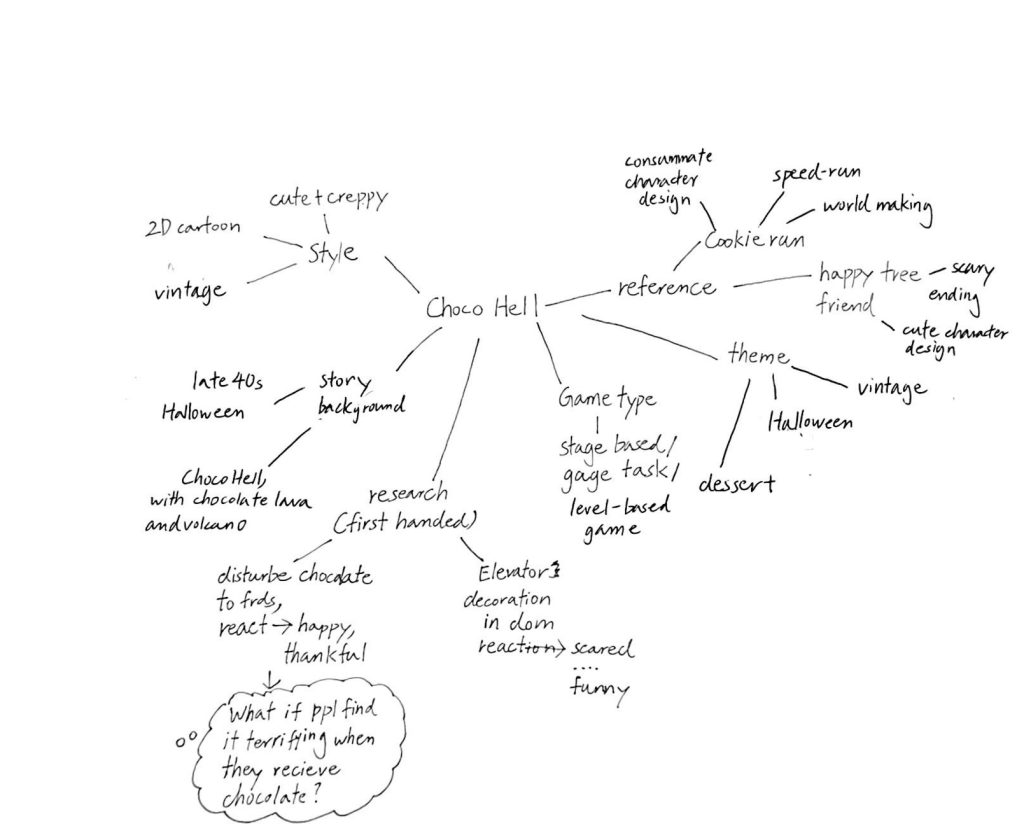 Choco Hell
Style
cute + creppy
2D cartoon
vintage
reference
Cookie run
consummate
character
design
speed-run
world making
happy tree
friend
scary
ending
cute character
design
theme
vintage
Halloween
dessert
Game type
stage based/
gage task/
level-based
game
story
background
late 40s
Halloween
Choco Hell,
with chocolate lava
and volcano
research
(first handed)
disturbe chocolate
to frds,
react → happy,
thankful
What if ppl find
it terrifying when
they recieve
chocolate?
Elevator
decoration
in dom
reaction → scared
....
funny